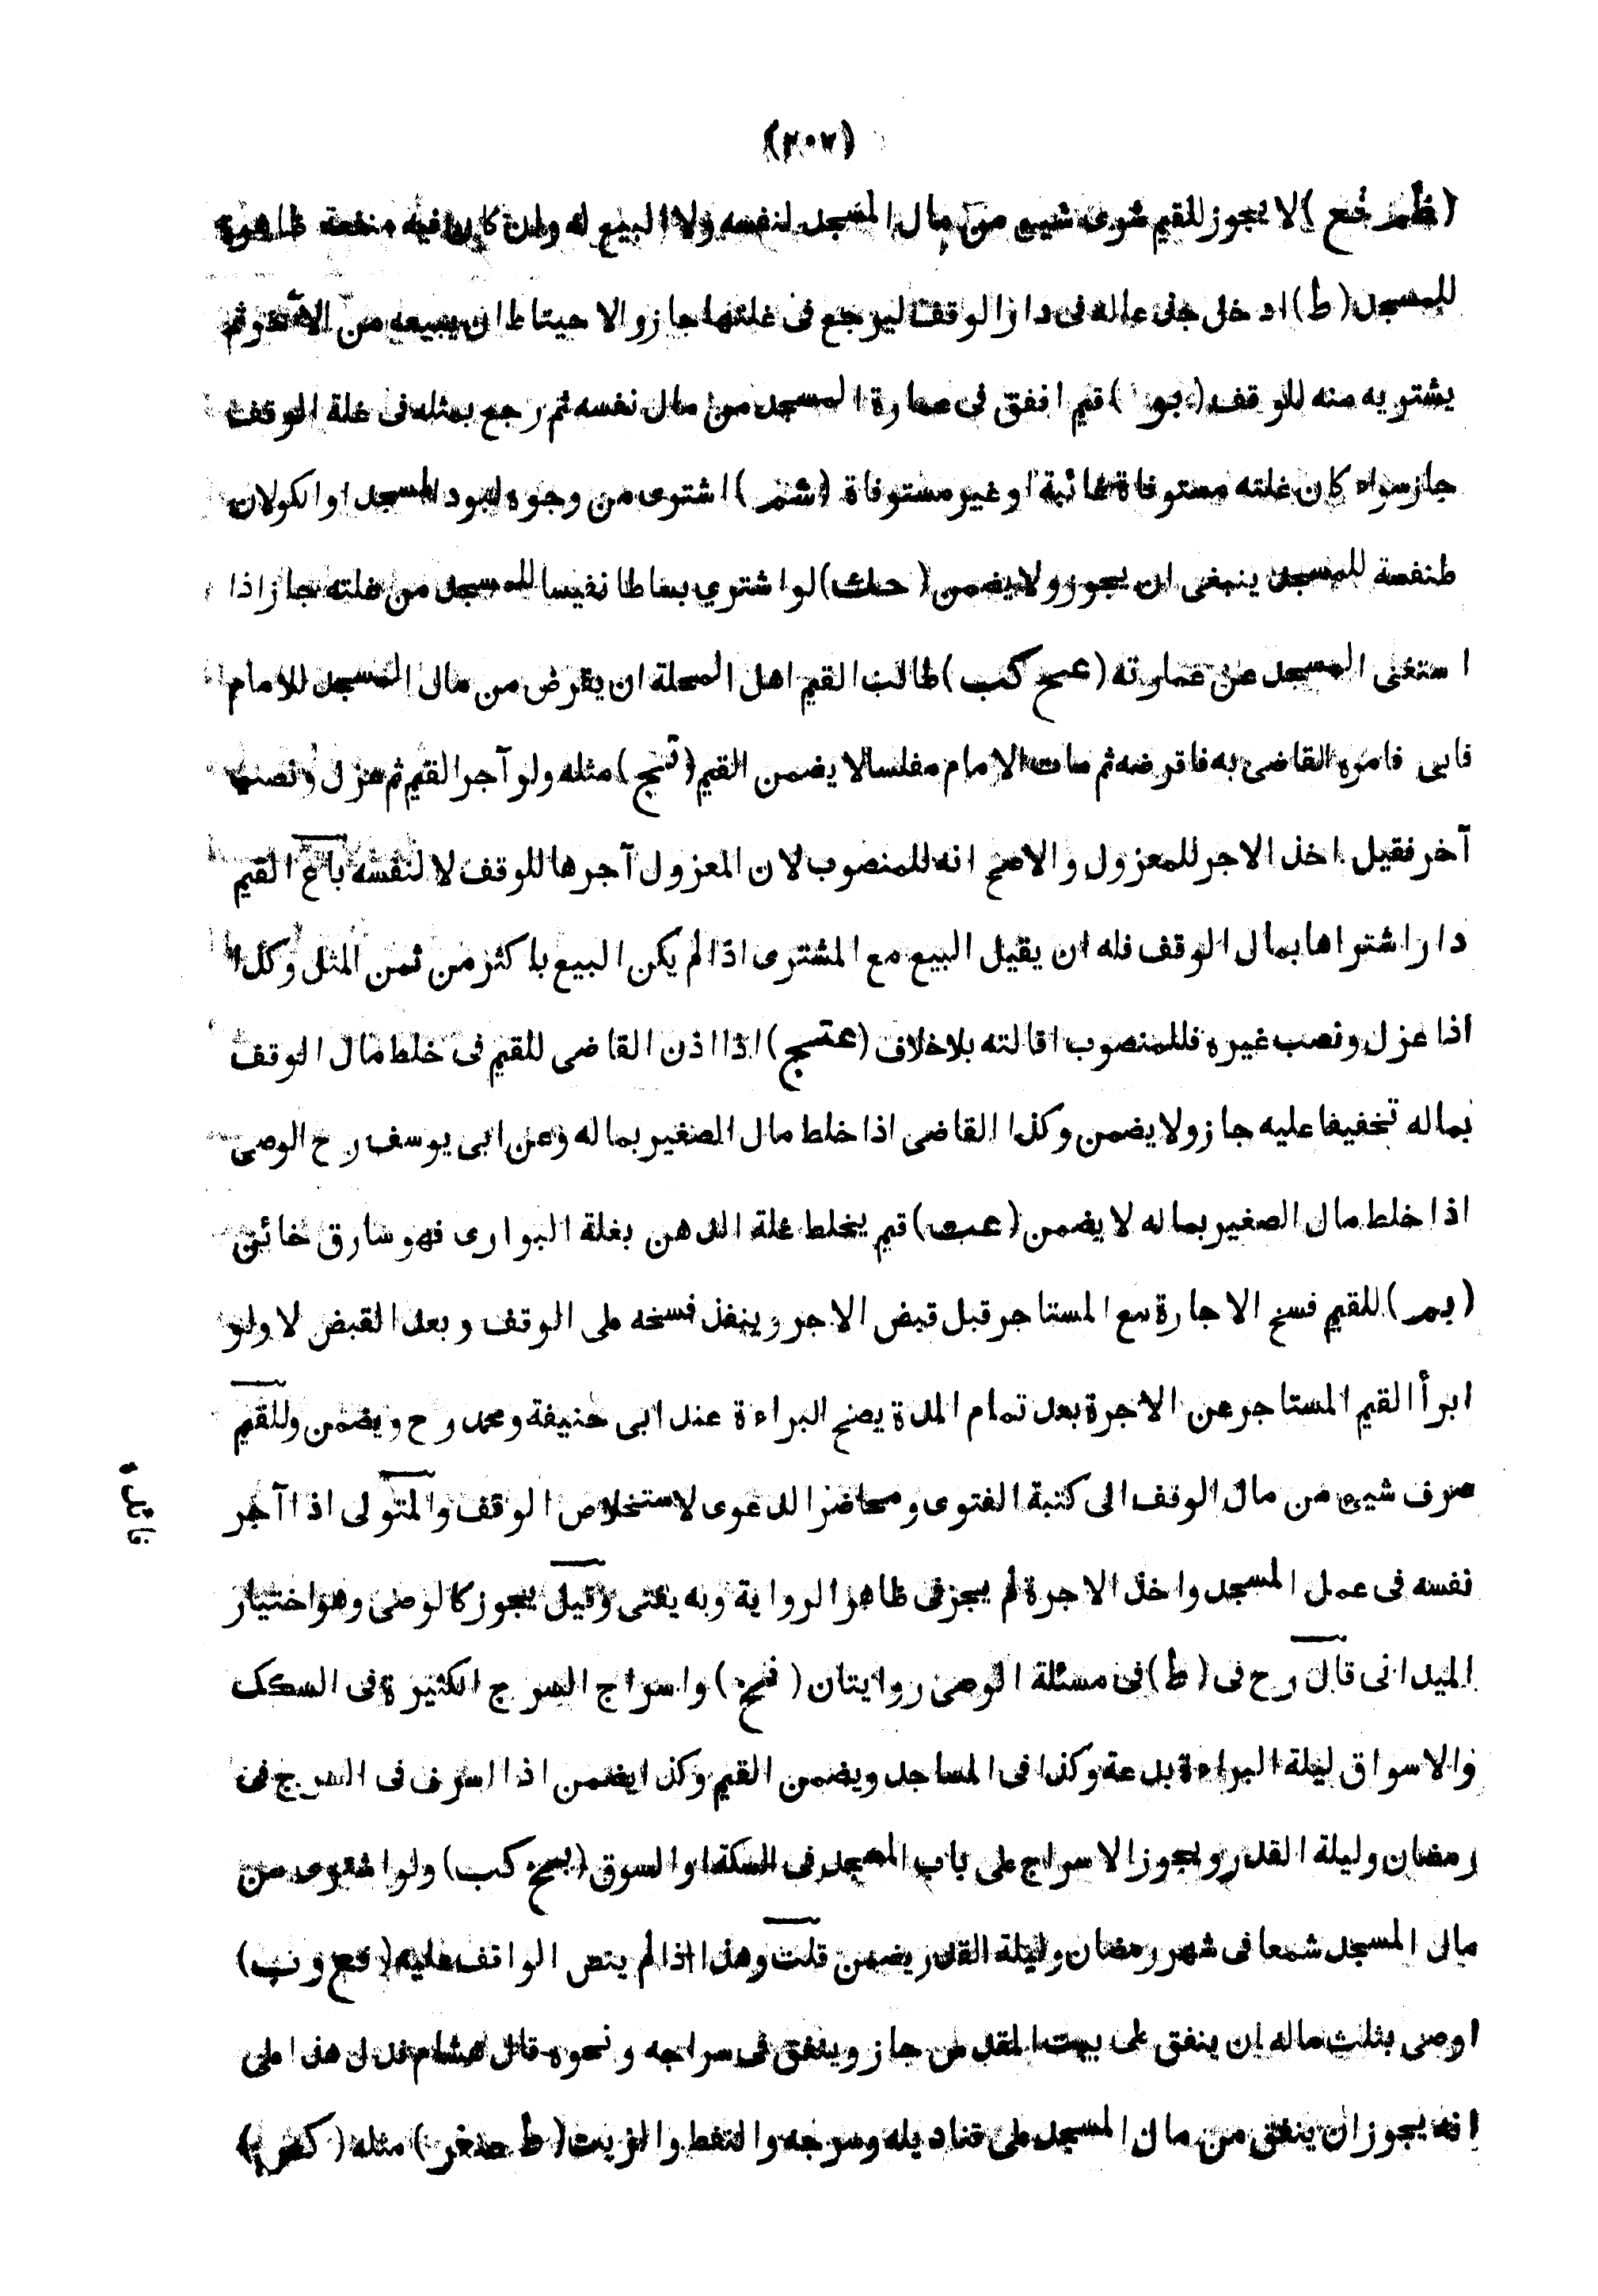 (٢٠٧)
(ظمر خع) لا يجوز للقيم شرى شيئ من مال المسجد لنفسه ولا البيع له وان كان فيه منفعة ظاهرة
للمسجد (ط) ادخل جذعا له فى دار الوقف ليرجع فى غلتها جاز والاحتياط ان يبيعه من الآخر ثم
يشتريه منه للوقف قيم انفق فى عمارة المسجد من مال نفسه ثم رجع بمثله فى غلة الوقف
جاز سواء كان غلته مستوفاة او غير مستوفاة (شمر) اشترى من وجوه لبود المسجد او الكولان
طنفسة للمسجد ينبغى ان يجوز ولا يضمن (حك) لو اشتري بساطا نفيسا للمسجد من غلته جاز اذا
استغنى المسجد عن عمارته (عح كب) طالب القيم اهل المحلة ان يقرض من مال المسجد للامام
فابى فامره القاضى به فاقرضه ثم مات الامام مفلسا لا يضمن القيم (قبج) مثله ولو آجر القيم ثم عزل ونصب
آخر فقيل اخذ الاجر للمعزول والاصح انه للمنصوب لان المعزول آجرها للوقف لا لنفسه باع القيم
دارا اشتراها بمال الوقف فله ان يقيل البيع مع المشترى اذا لم يكن البيع باكثر من ثمن المثل وكذا
اذا عزل ونصب غيره فللمنصوب اقالته بلا خلاف (عتبج) اذا اذن القاضى للقيم فى خلط مال الوقف
بماله تخفيفا عليه جاز ولا يضمن وكذا القاضى اذا خلط مال الصغير بماله وعن ابى يوسف رح الوصى
اذا خلط مال الصغير بماله لا يضمن (عت) قيم يخلط غلة الدهن بغلة البوارى فهو سارق خائن
(بمر) للقيم فسخ الاجارة مع المستاجر قبل قبض الاجر وينفذ فسخه على الوقف وبعد القبض لا ولو
ابرأ القيم المستاجر عن الاجرة بعد تمام المدة يصح البراءة عند ابى حنيفة ومحمد رح ويضمن وللقيم
صرف شيئ من مال الوقف الى كتبة الفتوى ومحاضر الدعوى لاستخلاص الوقف والمتولى اذا آجر
فائدة
نفسه فى عمل المسجد واخذ الاجرة لم يجز فى ظاهر الرواية وبه يفتى وقيل يجوز كالوصى وهو اختيار
الميدانى قال رح فى (ط) فى مسئلة الوصى روايتان (فخ) واسراج السرج الكثيرة فى السكك
والاسواق ليلة البراءة بدعة وكذا فى المساجد ويضمن القيم وكذا يضمن اذا اسرف فى السرج فى
رمضان وليلة القدر ويجوز الاسراج على باب المسجد فى السكة او السوق (بخ كب) ولو اشترى من
مال المسجد شمعا فى شهر رمضان وليلة القدر يضمن قلت وهذا اذا لم ينص الواقف عليه (قع و نب)
اوصى بثلث ماله ان ينفق على بيت المقدس جاز وينفق فى سراجه ونحوه قال هشام فدل هذا على
انه يجوز ان ينفق من مال المسجد على قناديله وسرجه والنفط والزيت (ط صغر) مثله